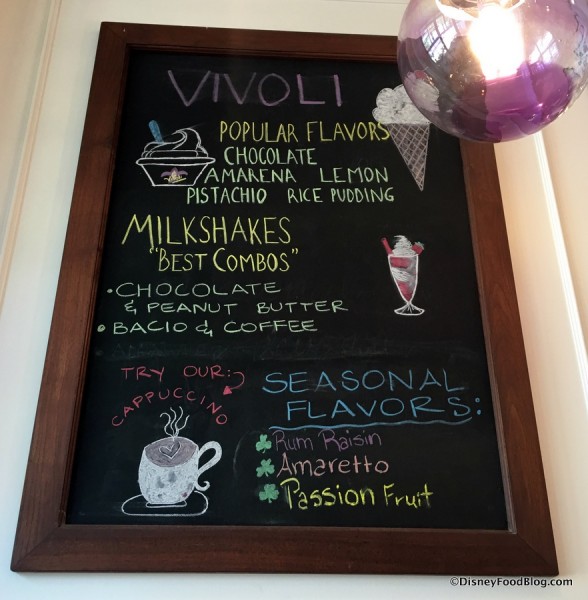 VIVOLI
POPULAR FLAVORS
CHOCOLATE
AMARENA LEMON
PISTACHIO RICE PUDDING
MILKSHAKES
"BEST COMBOS"
• CHOCOLATE
& PEANUT BUTTER
• BACIO & COFFEE
TRY OUR:
CAPPUCCINO
SEASONAL
FLAVORS:
Rum Raisin
Amaretto
Passion Fruit
©DisneyFoodBlog.com